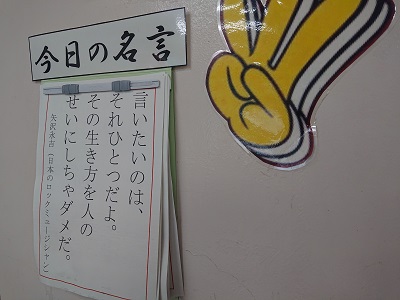 今日の名言
言いたいのは、
それひとつだよ。
その生き方を人の
せいにしちゃダメだ。
矢沢永吉(日本のロックミュージシャン)